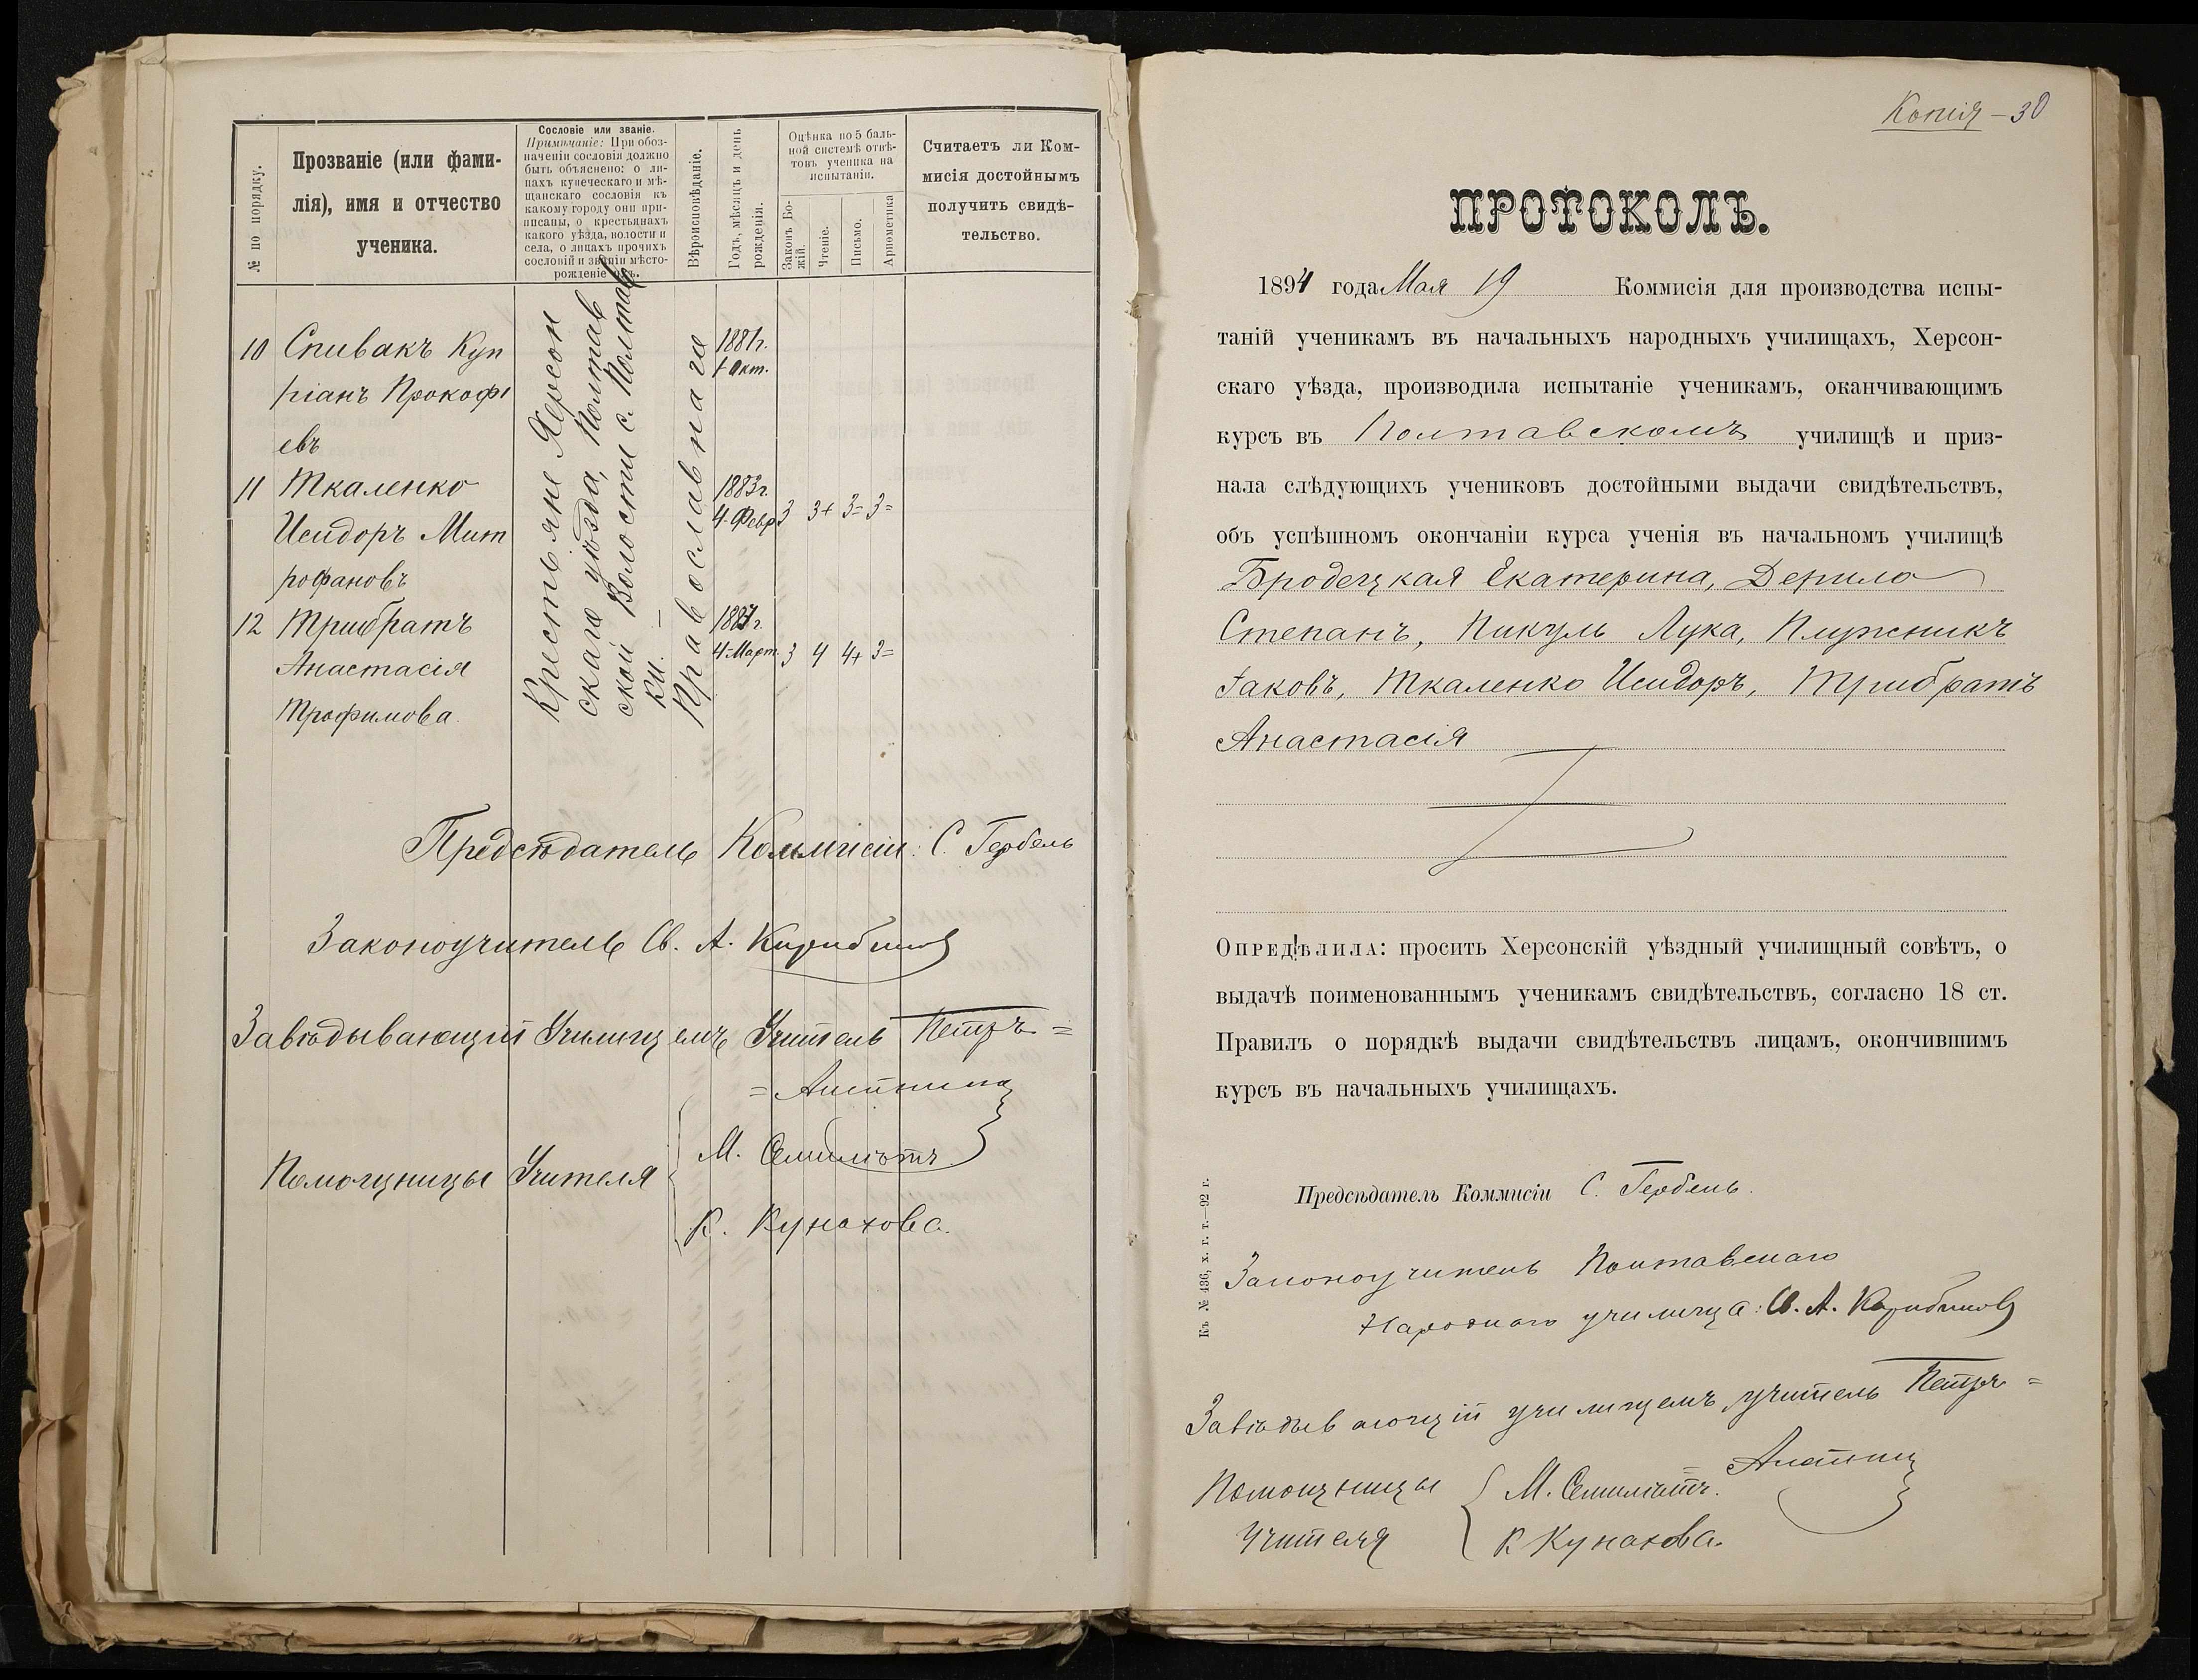 № по порядку.
Прозваніе (или фами-
лія), имя и отчество
ученика.
Сословіе или званіе.
Примѣчаніе: При обоз-
наченіи сословія должно
быть объяснено: о ли-
цахъ купеческаго и мѣ-
щанскаго сословія къ
какому городу они при-
писаны, о крестьянахъ
какого уѣзда, волости и
села, о лицахъ прочихъ
сословій и званій мѣсто-
рожденіе ихъ.
Вѣроисповѣданіе.
Годъ, мѣсяцъ и день
рожденія.
Оцѣнка по 5 баль-
ной системѣ отвѣ-
товъ ученика на
испытаніи.
Законъ Бо-
жій.
Чтеніе.
Письмо.
Арифметика
Считаетъ ли Ком-
мисія достойнымъ
получить свидѣ-
тельство.
10 Спивакъ Куп
ріанъ Прокофі
евъ
1881г.
1 Окт.
11 Ткаленко
Исидоръ Мит
рофановъ
1883г.
4 Февр 3 3+ 3= 3=
12 Трибратъ
Анастасія
Трофимова.
4 Март. 3 4 4+ 3=
Крестьяне Херсон
скаго уѣзда, Полтав
ской Волости с. Полтав
ки. —
Православнаго
Предсѣдатель Коммисіи: С. Гербель
Законоучитель Св. А.
Завѣдывающій Училищемъ Учитель Петръ =
Помощницы Учителя
М.
К. Кунахова.
Копія — 30
ПРОТОКОЛЪ.
1894 года Мая 19 Коммисія для производства испы-
таній ученикамъ въ начальныхъ народныхъ училищахъ, Херсон-
скаго уѣзда, производила испытаніе ученикамъ, оканчивающимъ
курсъ въ Полтавскомъ училищѣ и приз-
нала слѣдующихъ учениковъ достойными выдачи свидѣтельствъ,
объ успѣшномъ окончаніи курса ученія въ начальномъ училищѣ
Бродецкая Екатерина, Дерило
Степанъ, Пикуль Лука, Плужникъ
Іаковъ, Ткаленко Исидоръ, Трибратъ
Анастасія
Опредѣлила: просить Херсонскій уѣздный училищный совѣтъ, о
выдачѣ поименованнымъ ученикамъ свидѣтельствъ, согласно 18 ст.
Правилъ о порядкѣ выдачи свидѣтельствъ лицамъ, окончившимъ
курсъ въ начальныхъ училищахъ.
Къ № 436, х. г. т.—92 г.
Предсѣдатель Коммисіи С. Гербель.
Законоучитель Полтавскаго
Народнаго училища: Св. А.
Завѣдывающій училищемъ, учитель Петръ =
Помощницы
Учителя
М.
К Кунахова.